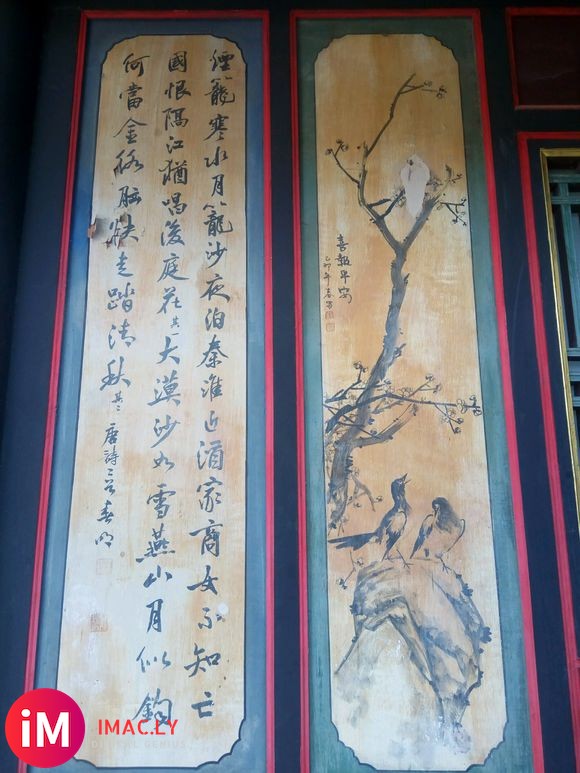 煙籠寒水月籠沙夜泊秦淮近酒家商女不知亡
國恨隔江猶唱後庭花其一大漠沙如雪燕山月似鈎
何當金絡腦快走踏清秋其二
唐詩二首春明
喜報早安
卯年春
iM IMAC.LY